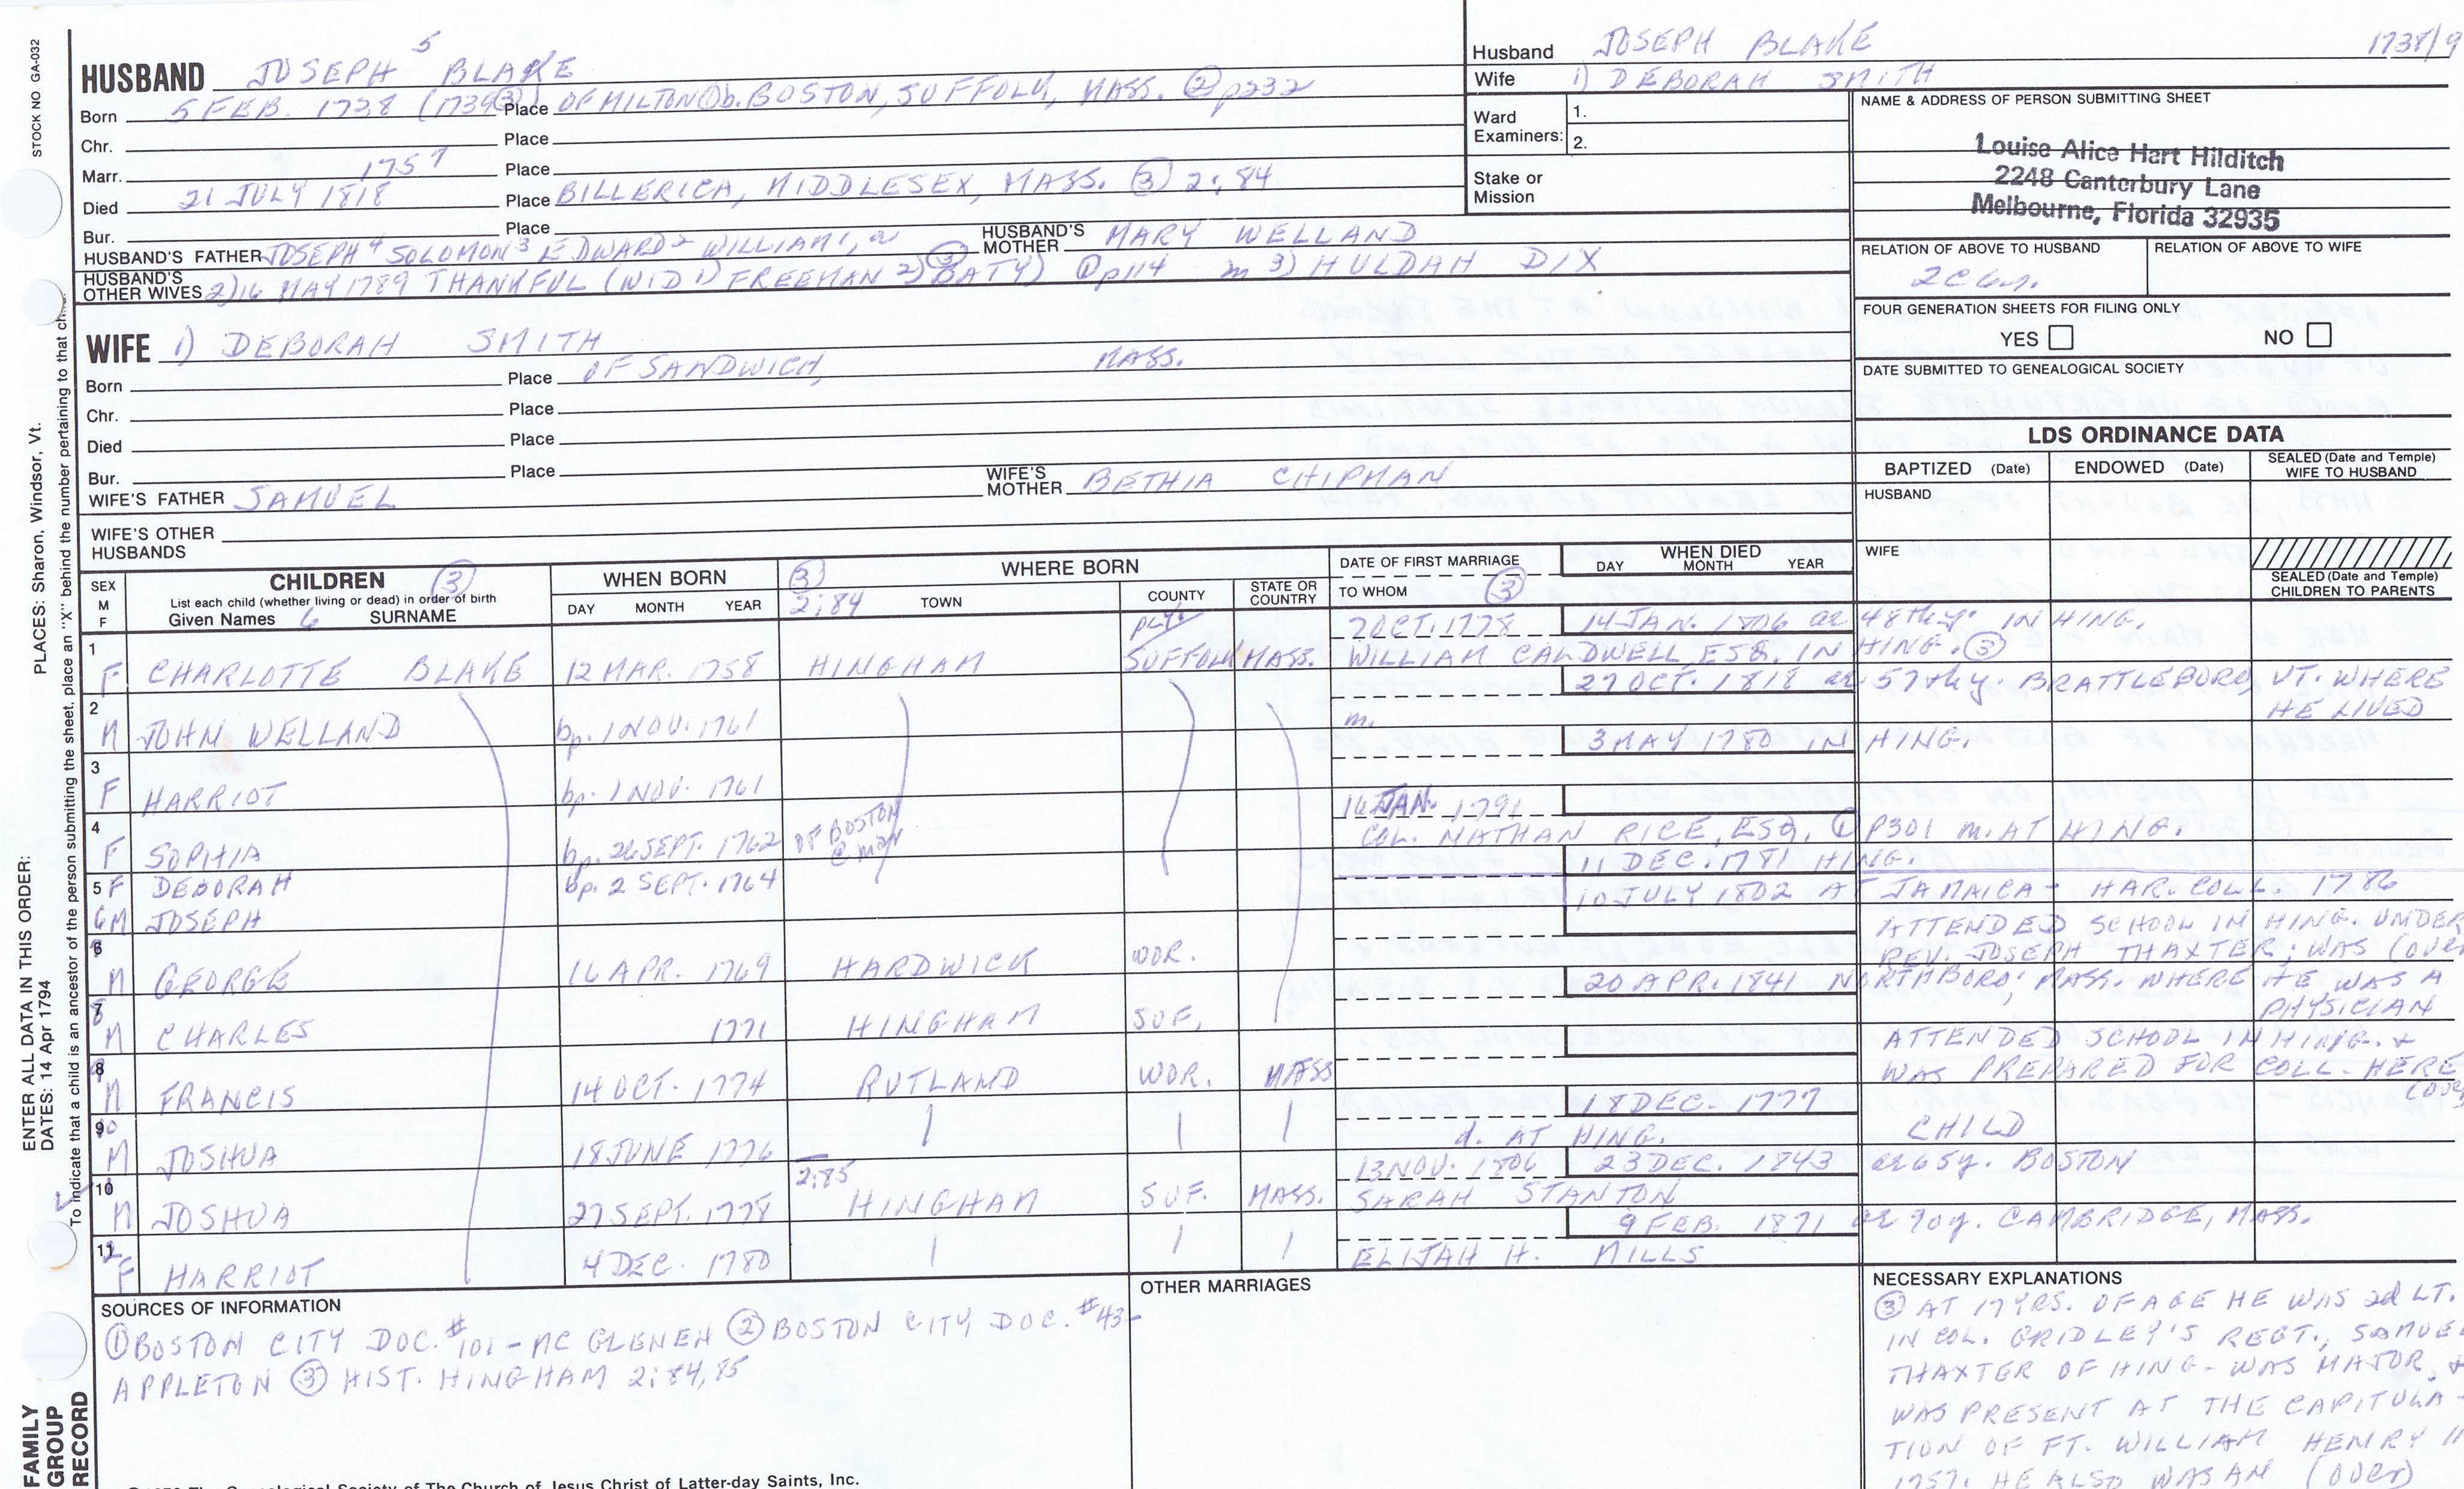 STOCK NO GA-032
PLACES: Sharon, Windsor, Vt.
ENTER ALL DATA IN THIS ORDER:
DATES: 14 Apr 1794
To indicate that a child is an ancestor of the person submitting the sheet, place an "X" behind the number pertaining to that
FAMILY
GROUP
RECORD
HUSBAND JOSEPH 5 BLAKE
Born 5 FEB. 1738 (1739 ③) Place OF MILTON ① b. BOSTON, SUFFOLK, MASS. ② p232
Chr. Place
Marr. 1757 Place
Died 21 JULY 1818 Place BILLERICA, MIDDLESEX, MASS. ③ 2:84
Bur. Place
HUSBAND'S FATHER JOSEPH 4 SOLOMON 3 EDWARD 2 WILLIAM 1, HUSBAND'S MOTHER MARY WELLAND
HUSBAND'S OTHER WIVES 2) 16 MAY 1789 THANKFUL (WID 1) FREEMAN 2) ③ BATY) ① p114 m 3) HULDAH DIX
WIFE 1) DEBORAH SMITH
Born Place OF SANDWICH, MASS.
Chr. Place
Died Place
Bur. Place
WIFE'S FATHER SAMUEL WIFE'S MOTHER BETHIA CHIPMAN
WIFE'S OTHER HUSBANDS
Husband JOSEPH BLAKE 1738/9
Wife 1) DEBORAH SMITH
Ward Examiners: 1.
2.
Stake or Mission
NAME & ADDRESS OF PERSON SUBMITTING SHEET
Louise Alice Hart Hilditch
2248 Canterbury Lane
Melbourne, Florida 32935
RELATION OF ABOVE TO HUSBAND RELATION OF ABOVE TO WIFE
FOUR GENERATION SHEETS FOR FILING ONLY
YES NO
DATE SUBMITTED TO GENEALOGICAL SOCIETY
LDS ORDINANCE DATA
BAPTIZED (Date) ENDOWED (Date) SEALED (Date and Temple) WIFE TO HUSBAND
HUSBAND
WIFE
SEALED (Date and Temple) CHILDREN TO PARENTS
SEX M F
CHILDREN ③
List each child (whether living or dead) in order of birth
Given Names SURNAME
WHEN BORN
DAY MONTH YEAR
③ 2:84
WHERE BORN
TOWN COUNTY STATE OR COUNTRY
DATE OF FIRST MARRIAGE
TO WHOM ③
WHEN DIED
DAY MONTH YEAR
7 OCT. 1778 14 JAN. 1806 ae 48thy. IN HING.
1 F CHARLOTTE BLAKE 12 MAR. 1758 HINGHAM SUFFOLK MASS. WILLIAM CALDWELL ESQ. IN HING. ③
27 OCT. 1818 ae 57thy. BRATTLEBORO, VT. WHERE HE LIVED
2 M JOHN WELLAND bp. 1 NOV. 1761 m.
3 MAY 1780 IN HING.
3 F HARRIOT bp. 1 NOV. 1761
16 JAN. 1791
4 F SOPHIA bp. 26 SEPT. 1762 OF BOSTON @ mar COL. NATHAN RICE, ESQ. ① P301 m. AT HING.
11 DEC. 1781 HING.
5 F DEBORAH bp. 2 SEPT. 1764
10 JULY 1802 AT JAMAICA - HAR. COLL. 1786
6 M JOSEPH
ATTENDED SCHOOL IN HING. UNDER
REV. JOSEPH THAXTER; WAS (OVER
7 M GEORGE 16 APR. 1769 HARDWICK WOR.
20 APR. 1841 NORTHBORO, MASS. WHERE HE WAS A PHYSICIAN
8 M CHARLES 1771 HINGHAM SUF.
ATTENDED SCHOOL IN HING. +
WAS PREPARED FOR COLL. HERE (OVER
9 M FRANCIS 14 OCT. 1774 RUTLAND WOR. MASS
18 DEC. 1777 CHILD
10 M JOSHUA 18 JUNE 1776 d. AT HING.
2:85 13 NOV. 1806 23 DEC. 1843 ae 65y. BOSTON
11 M JOSHUA 27 SEPT. 1778 HINGHAM SUF. MASS. SARAH STANTON
9 FEB. 1871 ae 90y. CAMBRIDGE, MASS.
12 F HARRIOT 4 DEC. 1780 ELIJAH H. MILLS
SOURCES OF INFORMATION
① BOSTON CITY DOC. #101 - MC GLENEH ② BOSTON CITY DOC. #43-
APPLETON ③ HIST. HINGHAM 2:84,85
OTHER MARRIAGES
NECESSARY EXPLANATIONS
③ AT 17 YRS. OF AGE HE WAS 2d LT.
IN COL. GRIDLEY'S REGT., SAMUEL
THAXTER OF HING. WAS MAJOR, +
WAS PRESENT AT THE CAPITULA-
TION OF FT. WILLIAM HENRY
1757. HE ALSO WAS AN (OVER)
The Genealogical Society of The Church of Jesus Christ of Latter-day Saints, Inc.